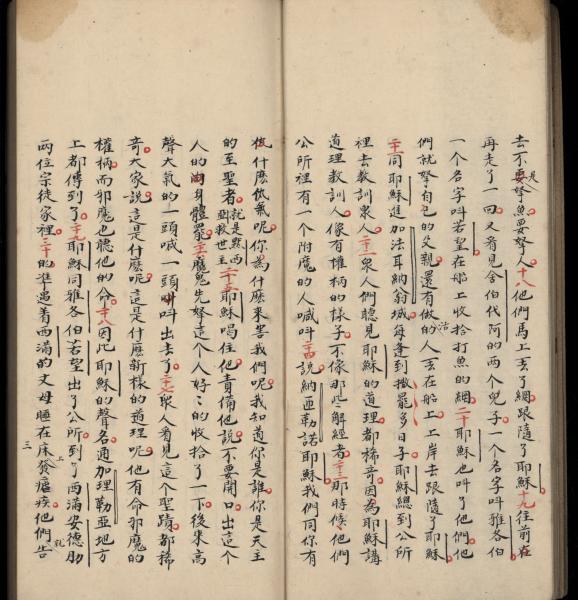 去不是要拏魚要拏人十八他們馬上丢了網跟隨了耶穌十九往前在
再走了一回又看見舍伯代阿的两個兒子一個名字叫雅各伯
一個名字叫若望在船上收拾打魚的網二十耶穌也叫了他們他
們就拏自己的父親還有做活的人丢在船上上岸去跟隨了耶穌
二十一同耶穌進加法耳納翁城每逢到撒罷多日子耶穌總到公所
裡去教訓衆人二十二衆人們聽見耶穌的道理都稀奇因為耶穌講
道理教訓人像有權柄的樣子不像那些解經者二十三那時候他們
公所裡有一個附魔的人喊叫二十四說納匝勒諾耶穌我們同你有
做什麽依氣呢你為什麽来害我們呢我知道你是誰你是天主
的至聖者就是默西亞救世主二十五耶穌喝住他責備他說不要開口出這個
人的肉身體罷二十六魔鬼先拏這個人好〻的收拾了一下後来高
聲大氣的一頭喊一頭叫出去了二十七衆人看見這個聖蹟都稀
奇大家說這是什麽呢這是什麽新樣的道理呢他有命邪魔的
權柄而邪魔也聽他的命二十八因此耶穌的聲名通加理勒亞地方
上都傳到了二十九耶穌同雅各伯若望出了公所到了西满安德肋
两位宗徒家裡三十的準遇着西满的丈母睡在床上發瘧疾他們告
三